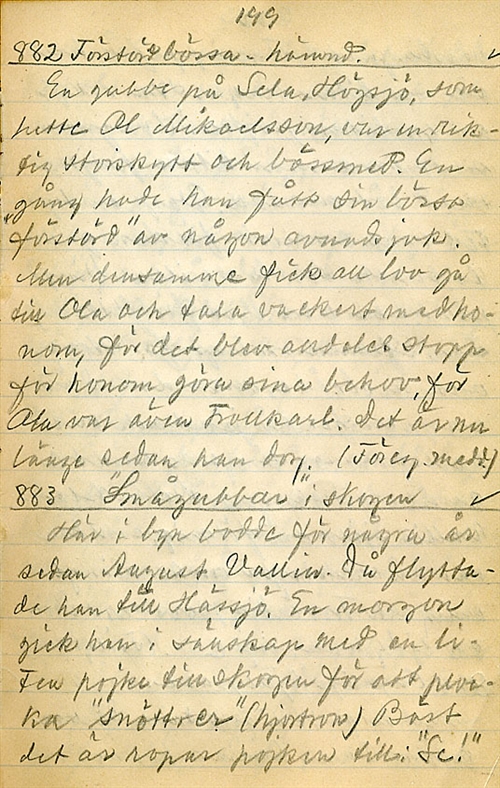 199
882 Förstörd bössa - hämnd. ✓
En gubbe på Sela, Högsjö, som
hette Ol Mikaelsson, var en rik-
tig storskytt och bössmed. En
gång hade han fått sin bössa
"förstörd" av någon avundsjuk.
Men densamme fick allt lov gå
till Ola och tala vackert med ho-
nom, för det blev alldeles stopp
för honom göra sina behov, för
Ola var även Trollkarl. Det är nu
länge sedan han dog. (Föreg. medd.)
883 "Smågubbar" i skogen ✓
Här i byn bodde för några år
sedan August Vallin. Då flytta-
de han till Hässjö. En morgon
gick han i sällskap med en li-
ten pojke till skogen för att ploc-
ka "snöttrer" (hjortron) Bäst
det är ropar pojken till: "Se!"